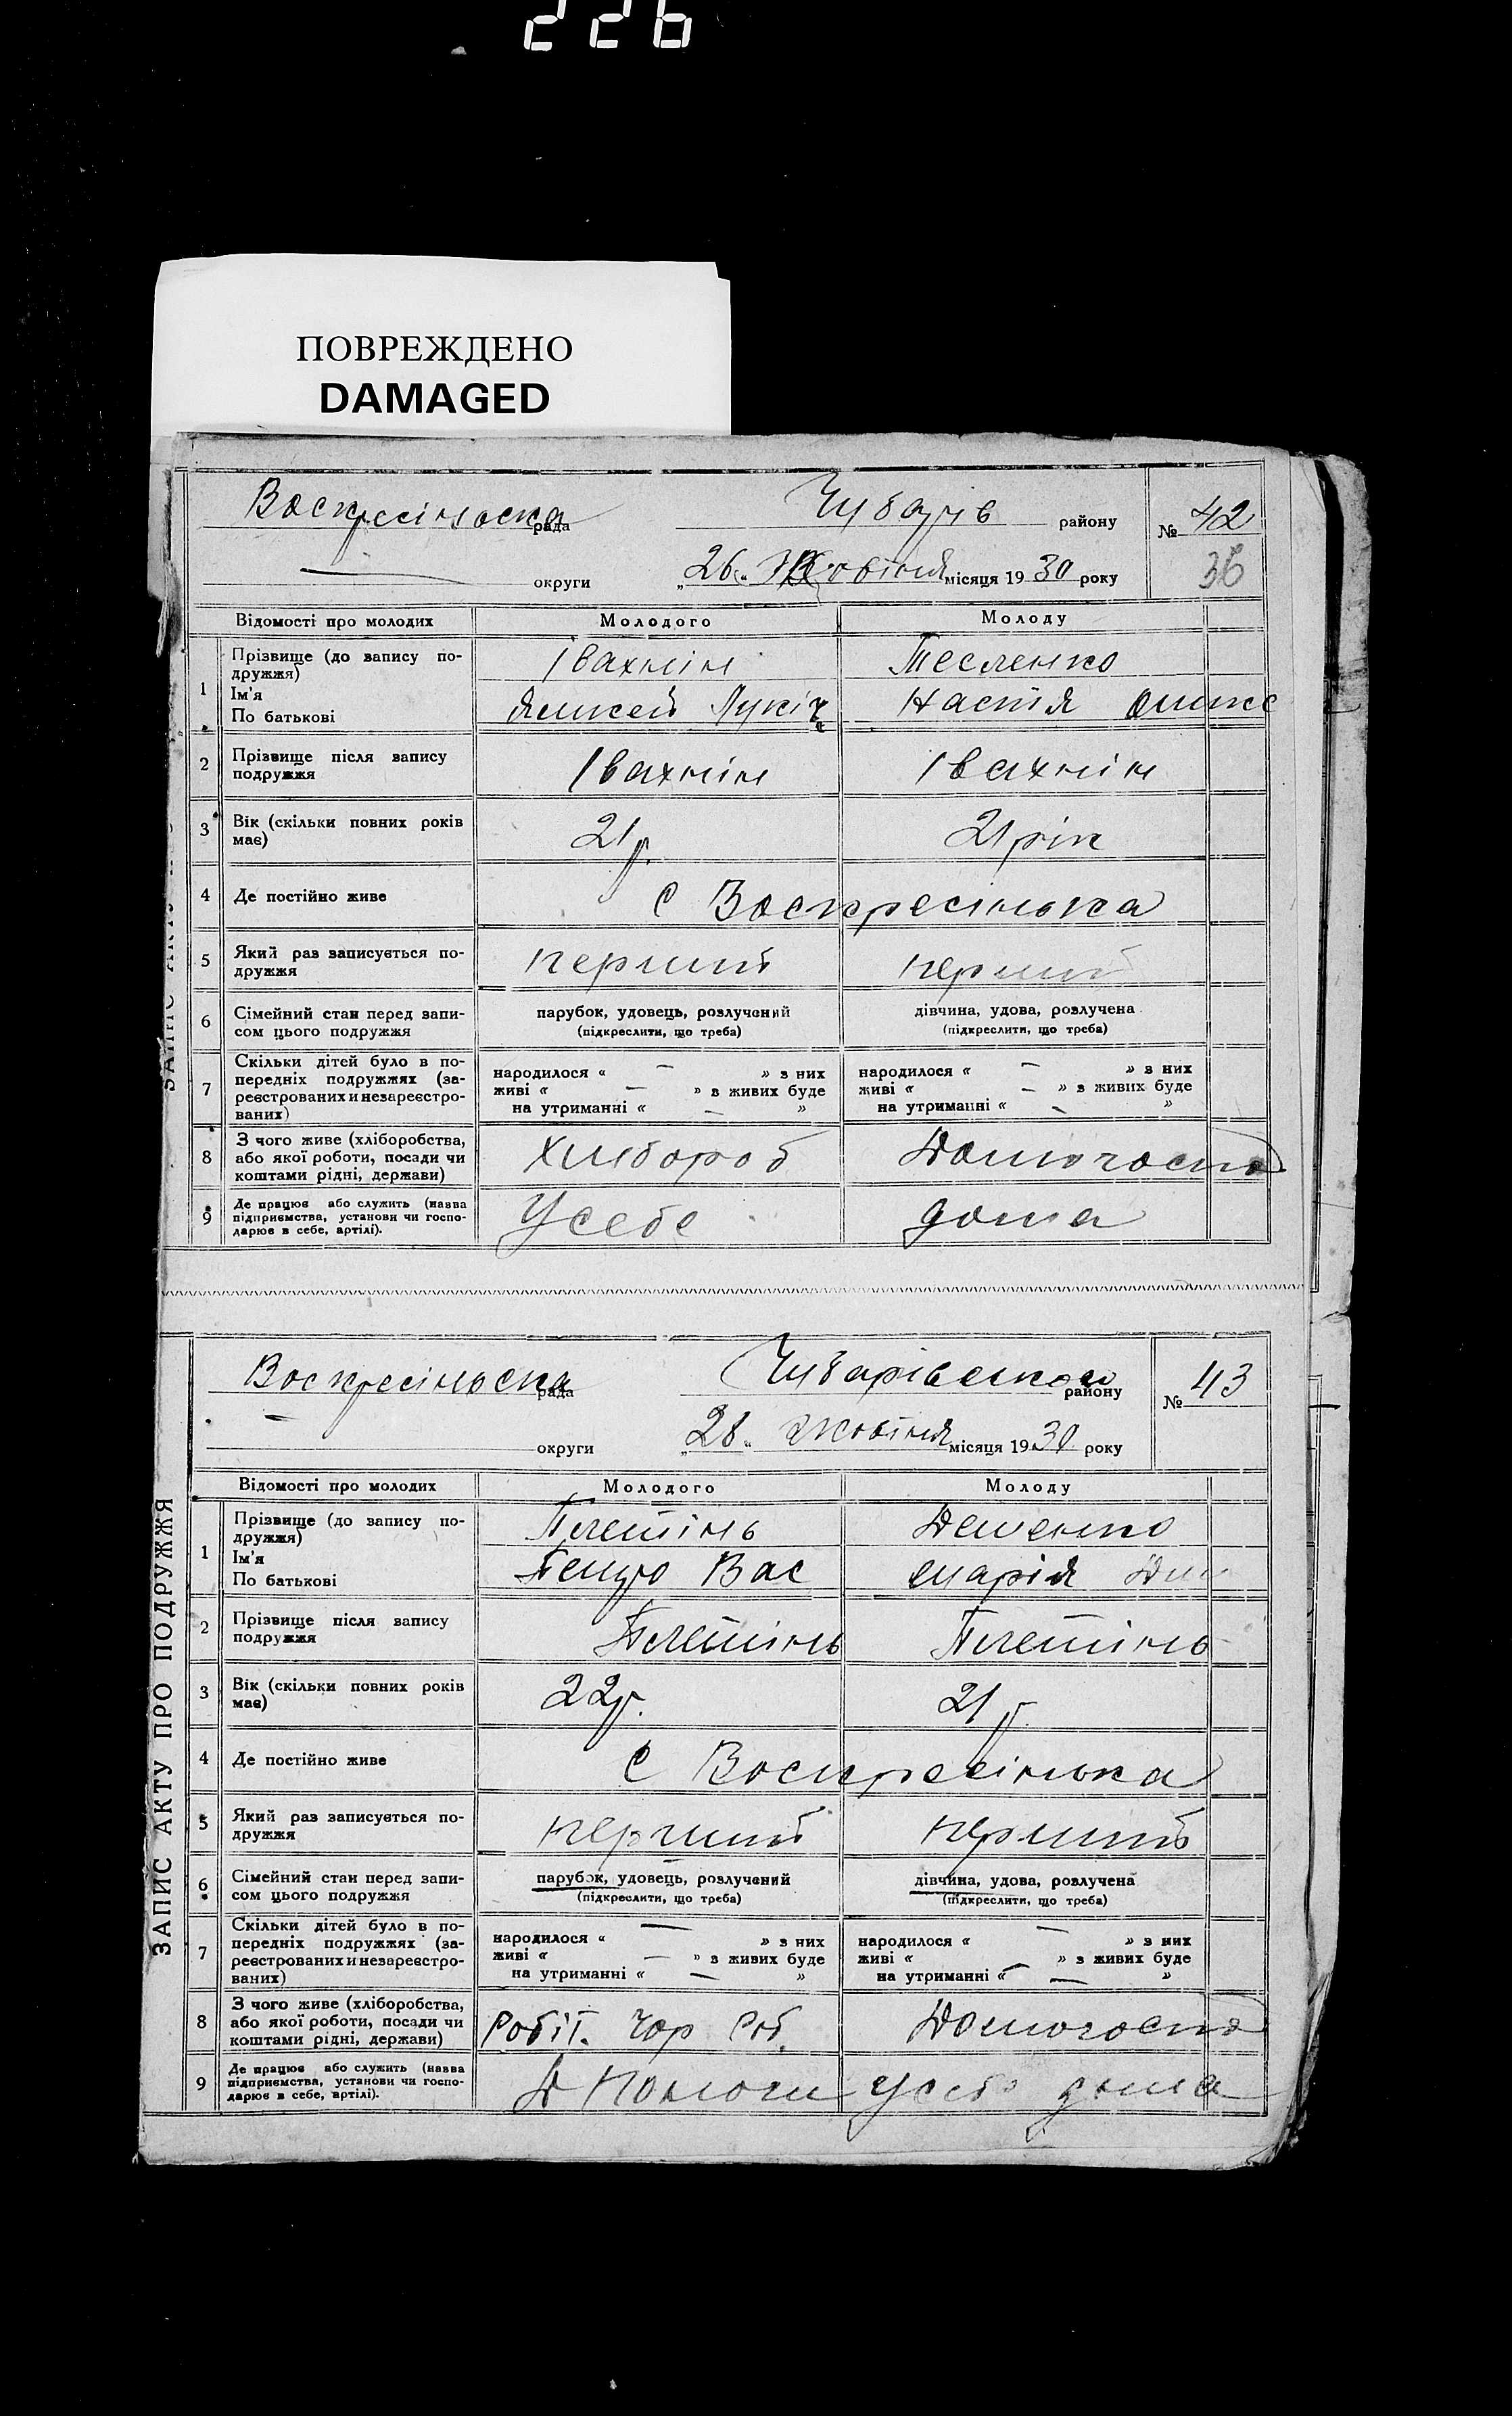 226
ПОВРЕЖДЕНО
DAMAGED
Воскресінська рада Чубарів району № 42
округи „26“ Жовтня місяця 1930 року 36
Відомості про молодих Молодого Молоду
1 Прізвище (до запису подружжя) Івахнін Тесленко
Ім'я
По батькові Лукіч Настя
2 Прізвище після запису подружжя Івахнін Івахнін
3 Вік (скільки повних років має) 21 р. 21 рік
4 Де постійно живе с Воскресінька
5 Який раз записується подружжя перший перший
6 Сімейний стан перед записом цього подружжя парубок, удовець, розлучений дівчина, удова, розлучена
(підкреслити, що треба) (підкреслити, що треба)
7 Скільки дітей було в попередніх подружжях (зареєстрованих и незареєстрованих)
народилося « — » з них народилося « — » з них
живі « — » в живих буде живі « — » в живих буде
на утриманні « — » на утриманні « — »
8 З чого живе (хліборобства, або якої роботи, посади чи коштами рідні, держави) Хлібороб Домогосп
9 Де працює або служить (назва підприємства, установи чи господарює в себе, артілі). У себе дома
Воскресінська рада Чубарівського району № 43
— округи „28“ жовтня місяця 1930 року
ЗАПИС АКТУ ПРО ПОДРУЖЖЯ
Відомості про молодих Молодого Молоду
1 Прізвище (до запису подружжя) Плетінь Деменко
Ім'я
По батькові Петро Вас Марія
2 Прізвище після запису подружжя Плетінь Плетінь
3 Вік (скільки повних років має) 22 р. 21 р.
4 Де постійно живе с Воскресінька
5 Який раз записується подружжя перший перший
6 Сімейний стан перед записом цього подружжя парубок, удовець, розлучений дівчина, удова, розлучена
(підкреслити, що треба) (підкреслити, що треба)
7 Скільки дітей було в попередніх подружжях (зареєстрованих и незареєстрованих)
народилося « — » з них народилося « — » з них
живі « — » в живих буде живі « — » в живих буде
на утриманні « — » на утриманні « — »
8 З чого живе (хліборобства, або якої роботи, посади чи коштами рідні, держави) Робіт. Чор Роб. Домогосп
9 Де працює або служить (назва підприємства, установи чи господарює в себе, артілі). Д Пологи у себе дома